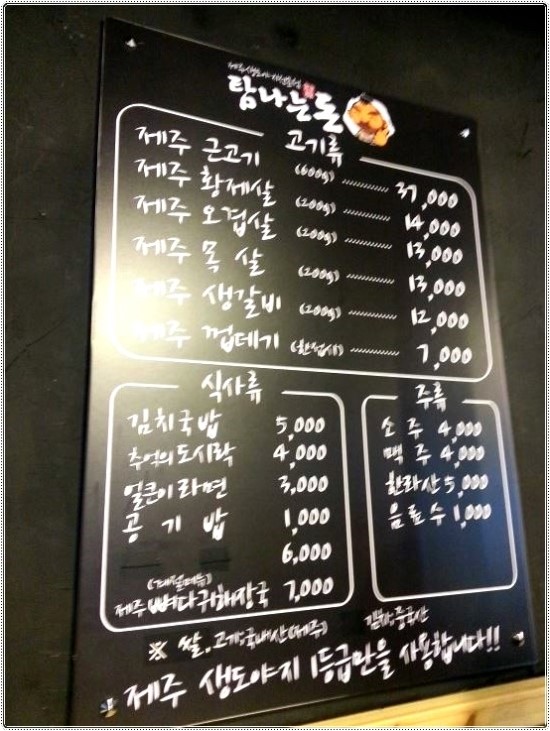 제주생도야지전문점
탐나는돈
고기류
제주 근고기 (600g) 37,000
제주 황제살 (200g) 14,000
제주 오겹살 (200g) 13,000
제주 목살 (200g) 13,000
제주 생갈비 (200g) 12,000
제주 껍데기 (한접시) 7,000
식사류
김치국밥 5,000
추억의도시락 4,000
얼큰이라면 3,000
공기밥 1,000
6,000
(계절메뉴)
제주뼈다귀해장국 7,000
주류
소주 4,000
맥주 4,000
한라산 5,000
음료수 1,000
※ 쌀.고기:국내산(제주) 김치:중국산
제주 생도야지 1등급만을 사용합니다!!